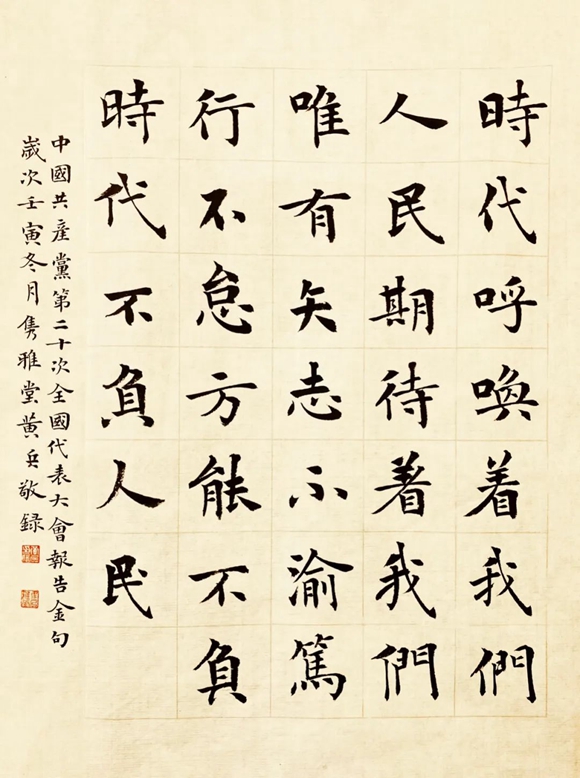 時代呼喚着我們
人民期待着我們
唯有矢志不渝篤
行不怠方能不負
時代不負人民
中國共產黨第二十次全國代表大會報告金句
歲次壬寅冬月雋雅堂黃兵敬録